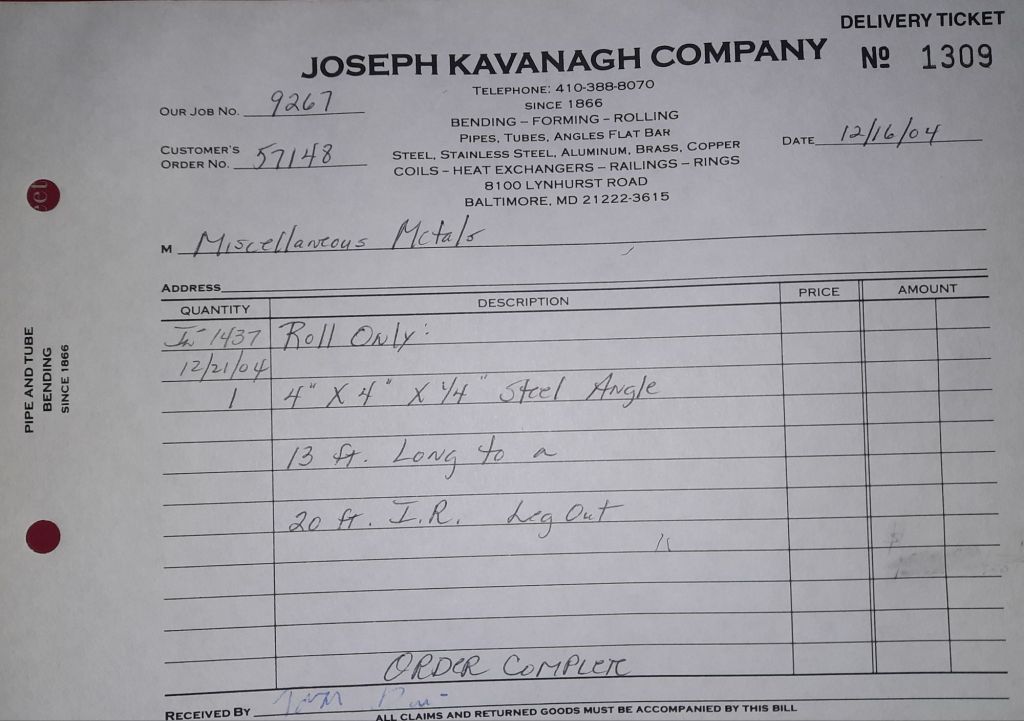 DELIVERY TICKET
JOSEPH KAVANAGH COMPANY
No 1309
TELEPHONE: 410-388-8070
SINCE 1866
BENDING – FORMING – ROLLING
PIPES, TUBES, ANGLES FLAT BAR
STEEL, STAINLESS STEEL, ALUMINUM, BRASS, COPPER
COILS – HEAT EXCHANGERS – RAILINGS – RINGS
8100 LYNHURST ROAD
BALTIMORE, MD 21222-3615
OUR JOB NO. 9267
CUSTOMER'S
ORDER NO. 57148
DATE 12/16/04
M Miscellaneous Metals
ADDRESS
QUANTITY DESCRIPTION PRICE AMOUNT
1437 Roll Only:
12/21/04
1 4" X 4" X 1/4" Steel Angle
13 ft. Long to a
20 ft. I.R. Leg Out
ORDER COMPLETE
RECEIVED BY
ALL CLAIMS AND RETURNED GOODS MUST BE ACCOMPANIED BY THIS BILL
PIPE AND TUBE
BENDING
SINCE 1866